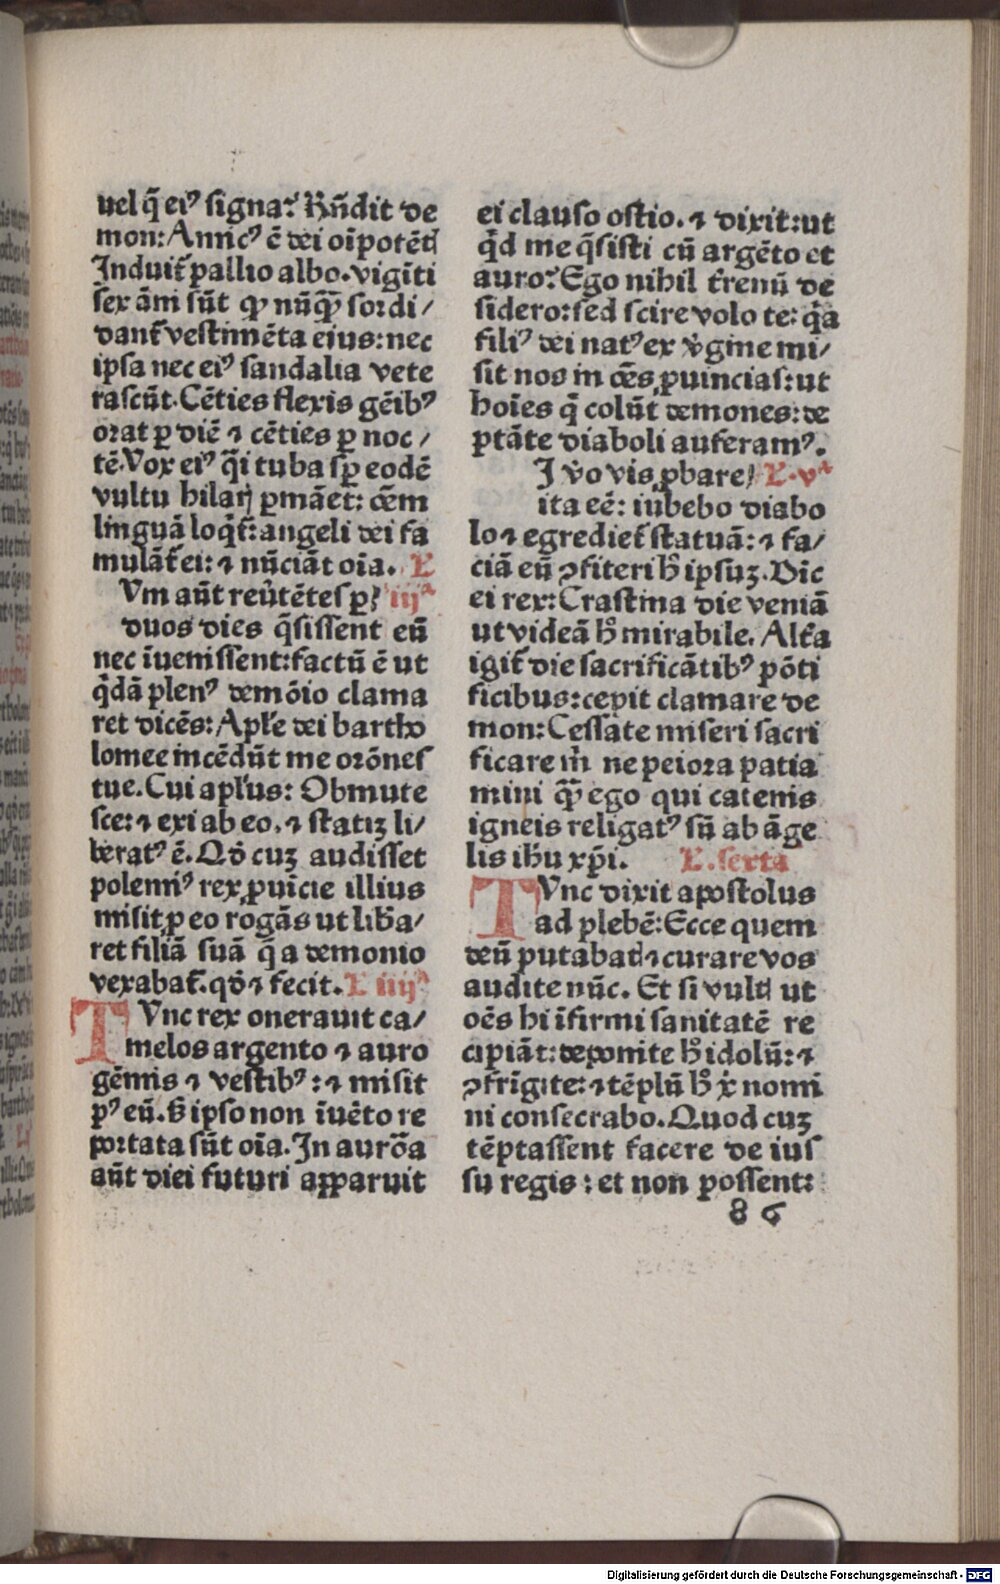 uel q̄ eiꝰ signa? Rn̄dit de
mon: Amicꝰ ē dei oīpotētꝭ
Induit̄ pallio albo. vigīti
sex āni sūt qꝫ nūq̄ꝫ sordi/
dant̄ vestimēta eius: nec
ipsa nec eiꝰ sandalia vete
rascūt. Cēties flexis gēibꝰ
orat ꝑ diē ⁊ cēties ꝑ noc/
tē. Vox eiꝰ q̄i tuba sꝑ eodē
vultu hilarj ꝑmāet: oēm
linguā loq̄t̄: angeli dei fa
mulāt̄ ei: ⁊ nūciāt oīa. L
Vm aūt reūtētes ꝑ iijᵃ
duos dies q̄sissent eū
nec īuenissent: factū ē ut
q̇dā plenꝰ demōio clama
ret dicēs: Apl̄e dei bartho
lomee incēdūt me orōnes
tue. Cui apl̄us: Obmute
sce: ⁊ exi ab eo. ⁊ statiꝫ li/
beratꝰ ē. Qd̄ cuꝫ audisset
polemiꝰ rex ꝓuīcie illius
misit ꝓ eo rogās ut lib̄a/
ret filiā suā q̄ a demonio
vexabat̄. qd̄ ⁊ fecit. L iiijᵃ
Tvnc rex onerauit ca/
melos argento ⁊ auro
gēmis ⁊ vestibꝰ: ⁊ misit
pꝰ eū. S̄ ipso non īuēto re
portata sūt oīa. In aurōa
aūt diei futuri apparuit
ei clauso ostio. ⁊ dixit: ut
q̇d me q̄sisti cū argēto et
auro? Ego nihil t̄renū de
sidero: sed scire volo te: q̇a
filiꝰ dei natꝰ ex v̇gine mi/
sit nos in oēs ꝓuincias: ut
hoīes q̄ colūt demones: de
ptāte diaboli auferamꝰ.
I v̇o vis ꝓbare L. vᵃ
ita eē: iubebo diabo
lo ⁊ egrediet̄ statuā: ⁊ fa/
ciā eū ꝯfiteri h̄ ipsuꝫ. Dic
ei rex: Crastina die veniā
ut videā h̄ mirabile. Alt̄a
igit̄ die sacrificātibꝰ pōti
ficibus: cepit clamare de
mon: Cessate miseri sacri
ficare m̄ ne peiora patia
mini q̄ꝫ ego qui catenis
igneis religatꝰ sū ab āge
lis ih̄u xp̄i. L. sexta
Tvnc dixit apostolus
ad plebē: Ecce quem
deū putabatꝭ curare vos
audite nūc. Et si vultꝭ ut
oēs hi īfirmi sanitatē re
cipiāt: deponite h̄ idolū: ⁊
ꝯfrīgite: ⁊ tēplū h̄ x̄ nomi
ni consecrabo. Quod cuꝫ
tēptassent facere de ius
su regis: et non possent:
86
Digitalisierung gefördert durch die Deutsche Forschungsgemeinschaft - DFG